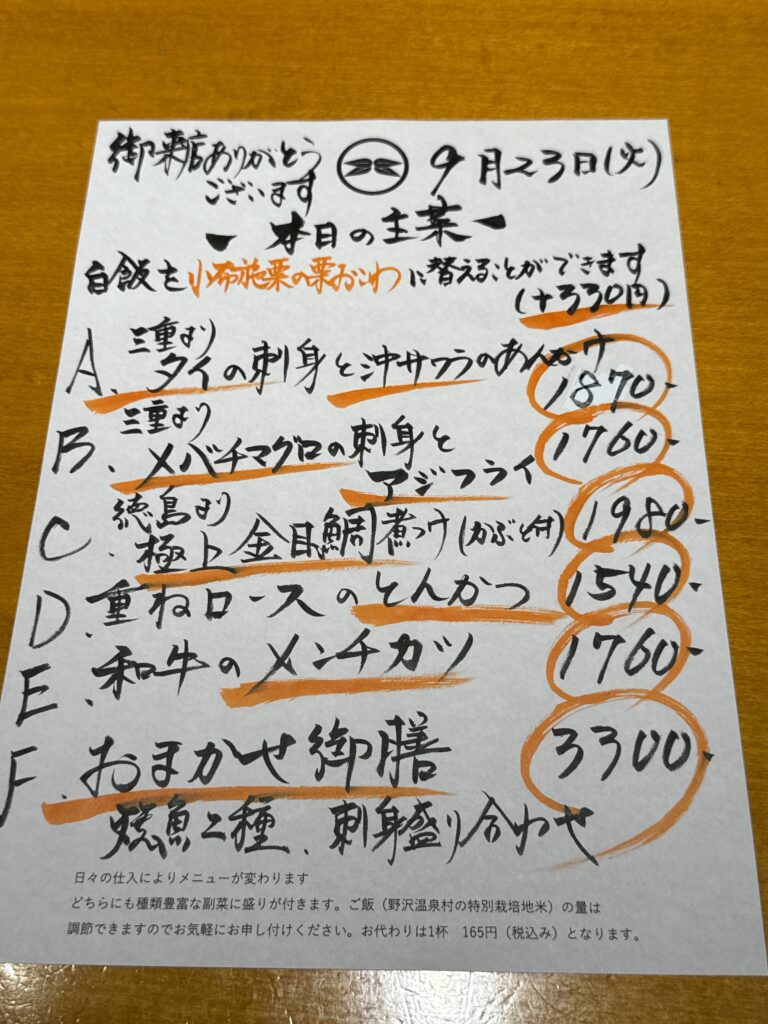 御来店ありがとう
ございます
9月23日(火)
本日の主菜
白飯を小布施栗の栗おこわに替えることができます
(+330円)
三重より
A、タイの刺身と沖サワラのあんかけ 1870-
三重より
B、メバチマグロの刺身と
アジフライ 1760-
徳島より
C、極上金目鯛煮つけ(かぶと付) 1980-
D、重ねロースのとんかつ 1540-
E、和牛のメンチカツ 1760-
F、おまかせ御膳 3300-
焼魚二種、刺身盛り合わせ
日々の仕入によりメニューが変わります
どちらにも種類豊富な副菜に盛りが付きます。ご飯(野沢温泉村の特別栽培地米)の量は
調節できますのでお気軽にお申し付けください。お代わりは1杯 165円(税込み)となります。